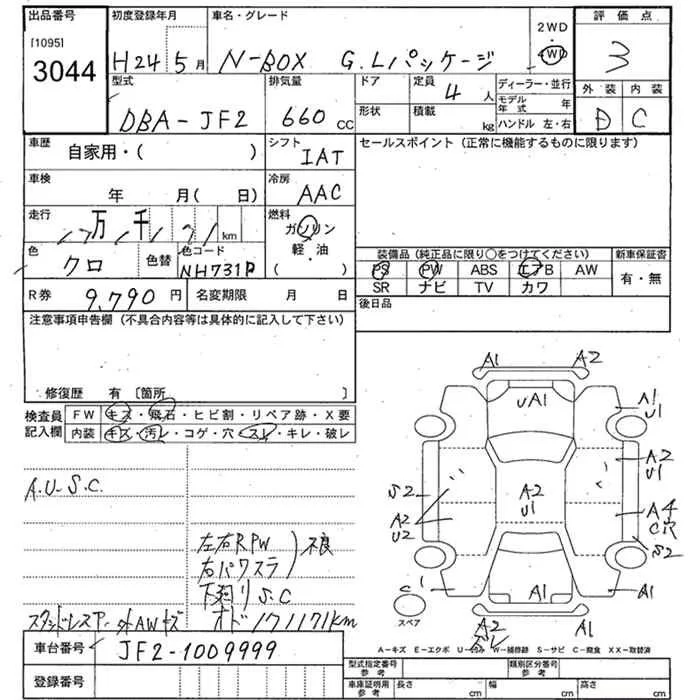 出品番号 初度登録年月 車名・グレード 2WD 4WD 評価点
[1095] 3044 H24 5月 N-BOX G.Lパッケージ 3
型式 排気量 ドア 定員 4人 ディーラー・並行 外装 内装
DBA-JF2 660cc 形状 積載 kg モデル年式 年 D C
ハンドル 左・右
車歴 自家用・( ) シフト IAT セールスポイント (正常に機能するものに限ります)
車検 年 月( 日) 冷房 AAC
走行 万 千 km 燃料 ガソリン
色 クロ 色替 色コード NH731P 軽・油 ( )
装備品 (純正品に限り〇をつけてください) 新車保証書
PS PW ABS エアB AW 有・無
SR ナビ TV カワ
R券 9,790円 名変期限 月 日 後日品
注意事項申告欄 (不具合内容等は具体的に記入して下さい)
修復歴 有 〔箇所 〕
検査員記入欄 FW キズ・飛石・ヒビ割・リペア跡・X要
内装 キズ・汚レ・コゲ・穴・スレ・キレ・破レ
A.U-S.C.
左右RPW 不良
右パワスラ
下廻りS.C
スタッドレスタイヤ 外AWキズ オド171171km
A1 A2
UA1
A1
U1
A2
U1
S2
A2
U2
A2
U1
A4
C穴
S2
C1
A1
A1
スペア
A2
A1
A-キズ E-エクボ U-ヘコミ W-補修跡 S-サビ C-腐食 XX-取替済
車台番号 JF2-1009999
登録番号
型式指定番号 参考 類別区分番号 参考
車庫証明用 参考 長さ 幅 高さ